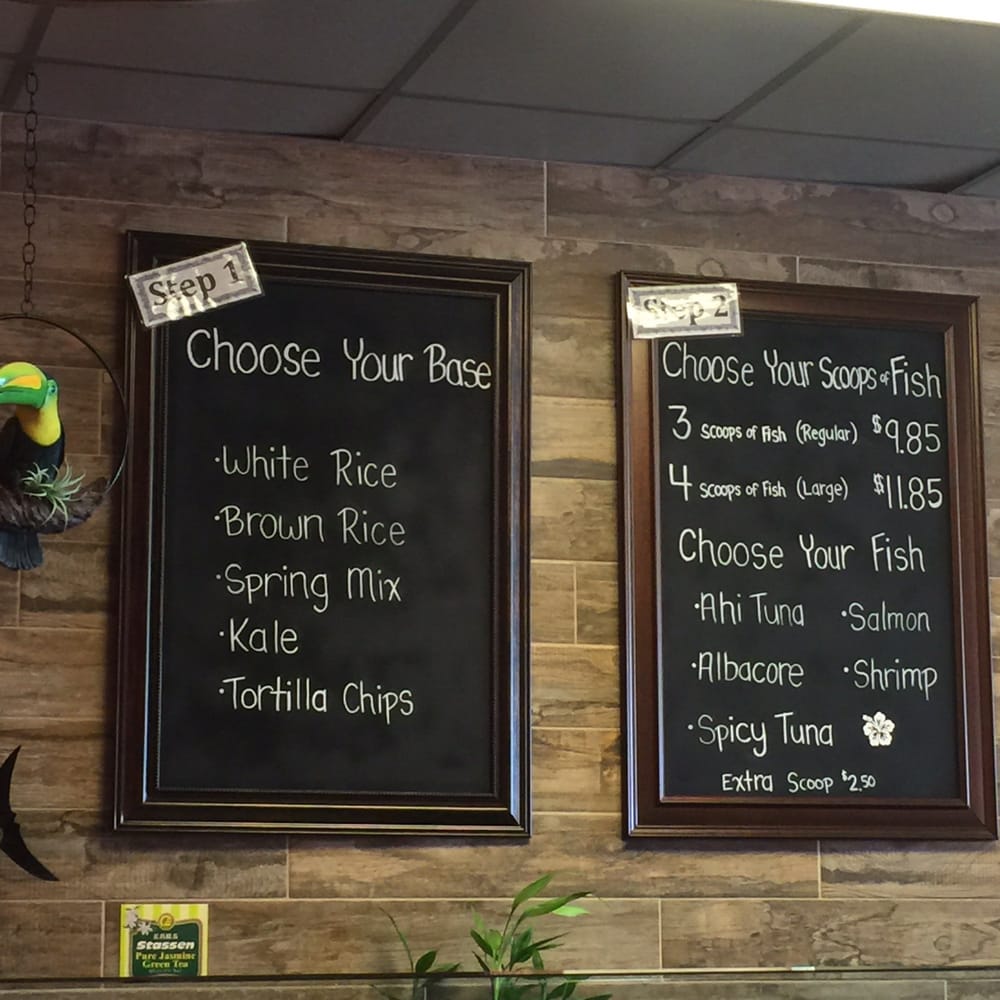 Step 1
Choose Your Base
·White Rice
·Brown Rice
·Spring Mix
·Kale
·Tortilla Chips
Step 2
Choose Your Scoops of Fish
3 Scoops of Fish (Regular) $9.85
4 Scoops of Fish (Large) $11.85
Choose Your Fish
·Ahi Tuna ·Salmon
·Albacore ·Shrimp
·Spicy Tuna
Extra Scoop $2.50
Stassen
Pure Jasmine
Green Tea